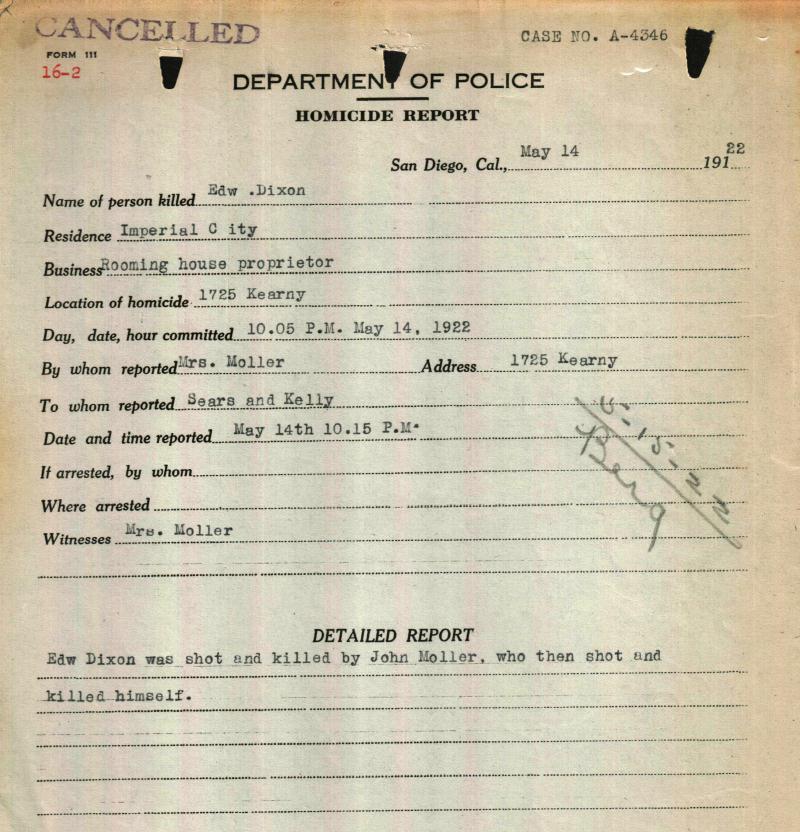 CANCELLED
CASE NO. A-4346
FORM 111
16-2
DEPARTMENT OF POLICE
HOMICIDE REPORT
San Diego, Cal., May 14 191 22
Name of person killed Edw .Dixon
Residence Imperial C ity
Business Rooming house proprietor
Location of homicide 1725 Kearny
Day, date, hour committed 10.05 P.M. May 14, 1922
By whom reported Mrs. Moller Address 1725 Kearny
To whom reported Sears and Kelly
Date and time reported May 14th 10.15 P.M.
If arrested, by whom
Where arrested
Witnesses Mrs. Moller
5-15-22
Berg
DETAILED REPORT
Edw Dixon was shot and killed by John Moller, who then shot and
killed himself.